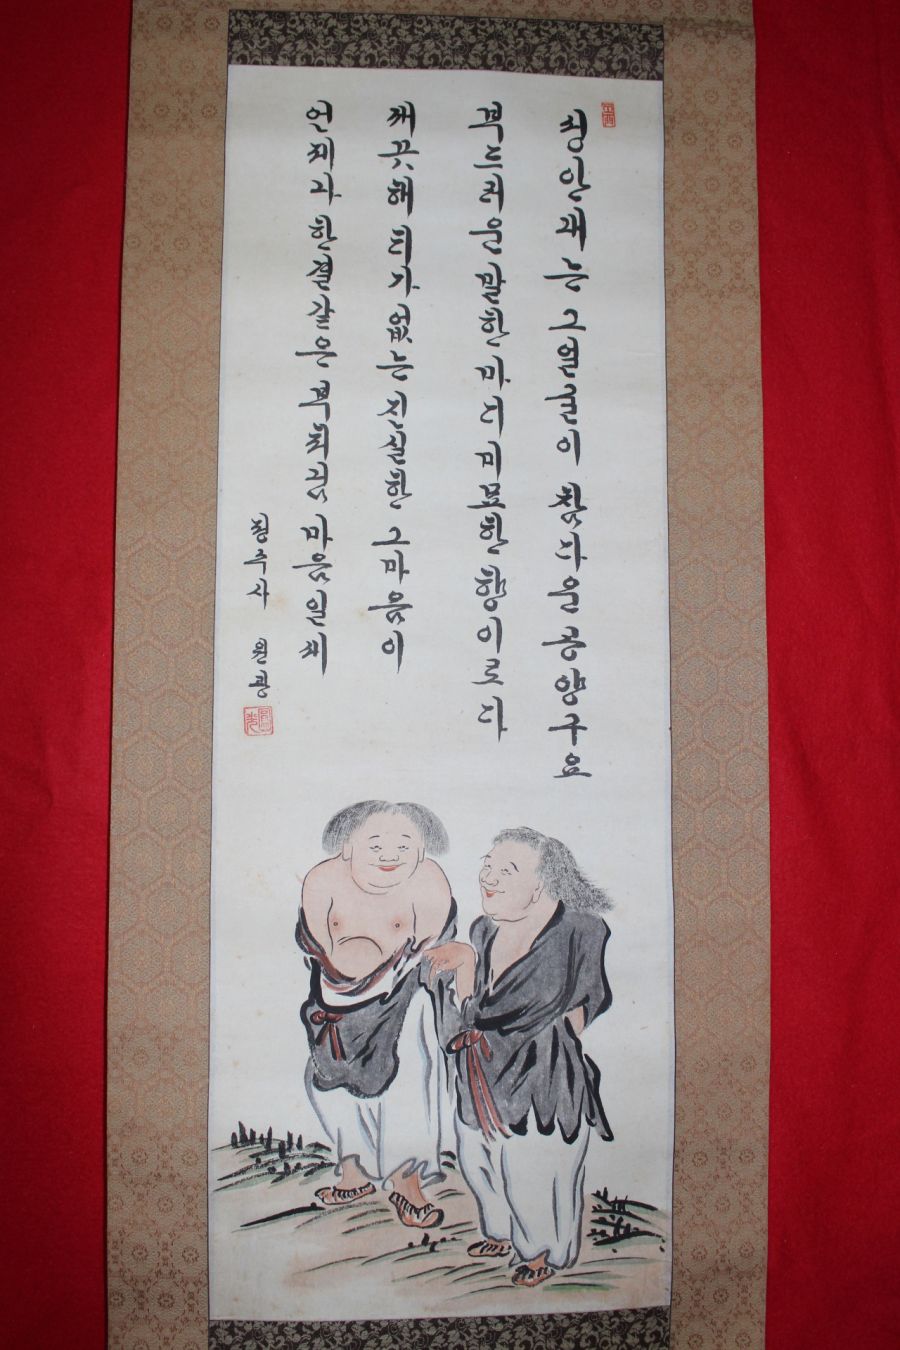 성안내는 그얼굴이 참다운 공양구요
부드러운 말한마디 미묘한 향이로다
깨끗해 티가없는 진실한 그마음이
언제나 한결같은 부처님 마음일세
청주사 원광